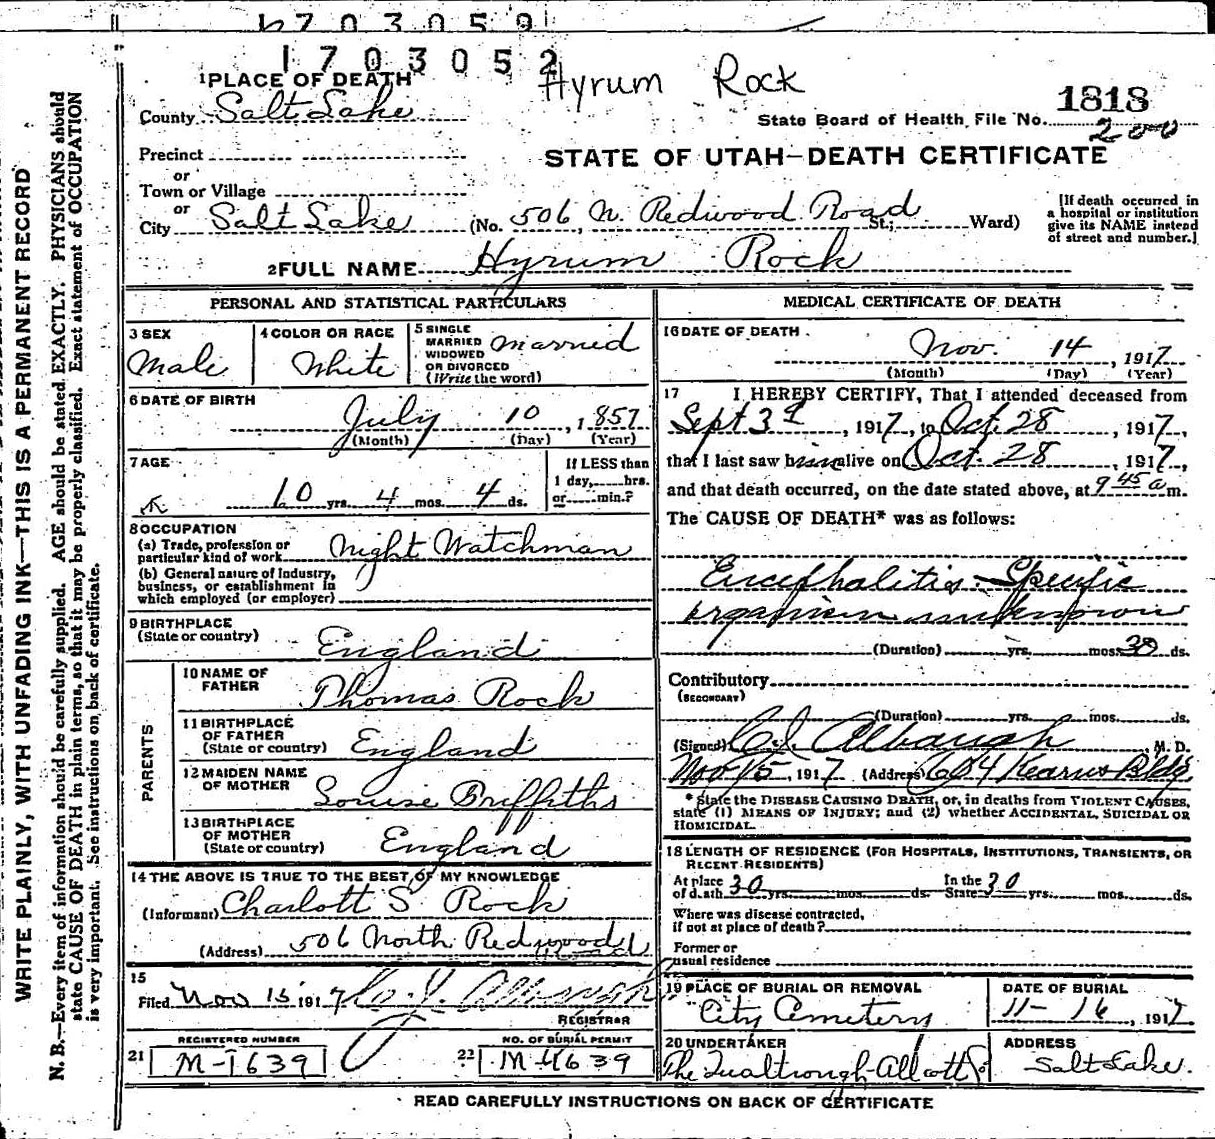 1703059
1703052
Hyrum Rock
1 PLACE OF DEATH
County Salt Lake
1818
State Board of Health File No. 200
Precinct
or
Town or Village
or
STATE OF UTAH—DEATH CERTIFICATE
City Salt Lake (No. 506 N. Redwood Road St.; Ward)
[If death occurred in
a hospital or institution
give its NAME instead
of street and number.]
2 FULL NAME Hyrum Rock
PERSONAL AND STATISTICAL PARTICULARS
3 SEX
Male
4 COLOR OR RACE
White
5 SINGLE
MARRIED
WIDOWED
OR DIVORCED
(Write the word)
Married
6 DATE OF BIRTH
July 10, 1857
(Month) (Day) (Year)
7 AGE
60 yrs. 4 mos. 4 ds.
If LESS than
1 day, hrs.
or min.?
8 OCCUPATION
(a) Trade, profession or
particular kind of work Night Watchman
(b) General nature of Industry,
business, or establishment in
which employed (or employer)
9 BIRTHPLACE
(State or country) England
PARENTS
10 NAME OF
FATHER Thomas Rock
11 BIRTHPLACE
OF FATHER
(State or country) England
12 MAIDEN NAME
OF MOTHER Louise Griffiths
13 BIRTHPLACE
OF MOTHER
(State or country) England
14 THE ABOVE IS TRUE TO THE BEST OF MY KNOWLEDGE
(Informant) Charlott S Rock
(Address) 506 North Redwood Road
15
Filed Nov 15 1917
REGISTRAR
REGISTERED NUMBER
21 M-1639
NO. OF BURIAL PERMIT
22 M-1639
MEDICAL CERTIFICATE OF DEATH
16 DATE OF DEATH
Nov. 14, 1917
(Month) (Day) (Year)
17 I HEREBY CERTIFY, That I attended deceased from
Sept 3d, 1917, to Oct. 28, 1917,
that I last saw him alive on Oct. 28, 1917,
and that death occurred, on the date stated above, at 9 45 a m.
The CAUSE OF DEATH* was as follows:
Encephalitis. Specific
organism unknown
(Duration) yrs. mos. 30 ds.
Contributory
(SECONDARY)
(Duration) yrs. mos. ds.
(Signed) C. J. Albaugh, M. D.
Nov 15, 1917 (Address) 604 Kearns Bldg
* State the DISEASE CAUSING DEATH, or, in deaths from VIOLENT CAUSES,
state (1) MEANS OF INJURY; and (2) whether ACCIDENTAL, SUICIDAL OR
HOMICIDAL.
18 LENGTH OF RESIDENCE (FOR HOSPITALS, INSTITUTIONS, TRANSIENTS, OR
RECENT RESIDENTS)
At place
of death 30 yrs. mos. ds. In the State 30 yrs. mos. ds.
Where was disease contracted,
if not at place of death?
Former or
usual residence
19 PLACE OF BURIAL OR REMOVAL
City Cemetery
DATE OF BURIAL
11-16, 1917
20 UNDERTAKER
ADDRESS
Salt Lake.
READ CAREFULLY INSTRUCTIONS ON BACK OF CERTIFICATE
WRITE PLAINLY, WITH UNFADING INK—THIS IS A PERMANENT RECORD
N. B.—Every item of information should be carefully supplied. AGE should be stated EXACTLY. PHYSICIANS should
state CAUSE OF DEATH in plain terms, so that it may be properly classified. Exact statement of OCCUPATION
is very important. See instructions on back of certificate.